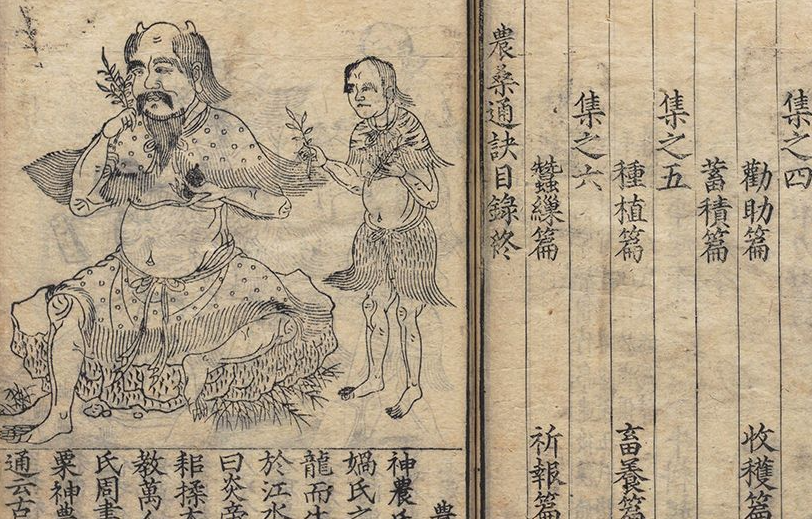 集之四
勸助篇 收穫篇
蓄積篇
集之五
種植篇 畜養篇
集之六
蠶繅篇 祈報篇
農桑通訣目錄終
農
神農氏
媧氏之
龍而生
於江水
曰炎帝
耜揉木
教萬人
氏周書
粟神農
通云古